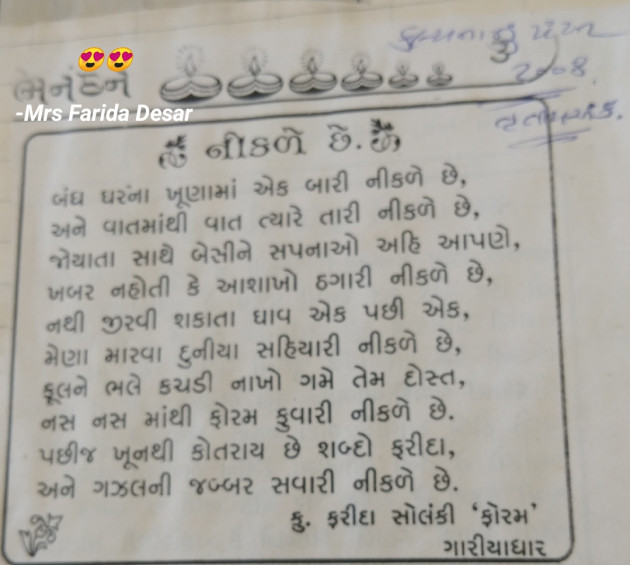 -Mrs Farida Desar
2008.
નીકળે છે.
બંધ ઘરના ખૂણામાં એક બારી નીકળે છે,
અને વાતમાંથી વાત ત્યારે તારી નીકળે છે,
જોયાતા સાથે બેસીને સપનાઓ અહિ આપણે,
ખબર નહોતી કે આશાખો ઠગારી નીકળે છે,
નથી જીરવી શકાતા ઘાવ એક પછી એક,
મેણા મારવા દુનીયા સહિયારી નીકળે છે,
ફૂલને ભલે કચડી નાખો ગમે તેમ દોસ્ત,
નસ નસ માંથી ફોરમ કુવારી નીકળે છે.
પછીજ ખૂનથી કોતરાય છે શબ્દો ફરીદા,
અને ગઝલની જબ્બર સવારી નીકળે છે.
કુ. ફરીદા સોલંકી ‘ફોરમ’
ગારીયાધાર